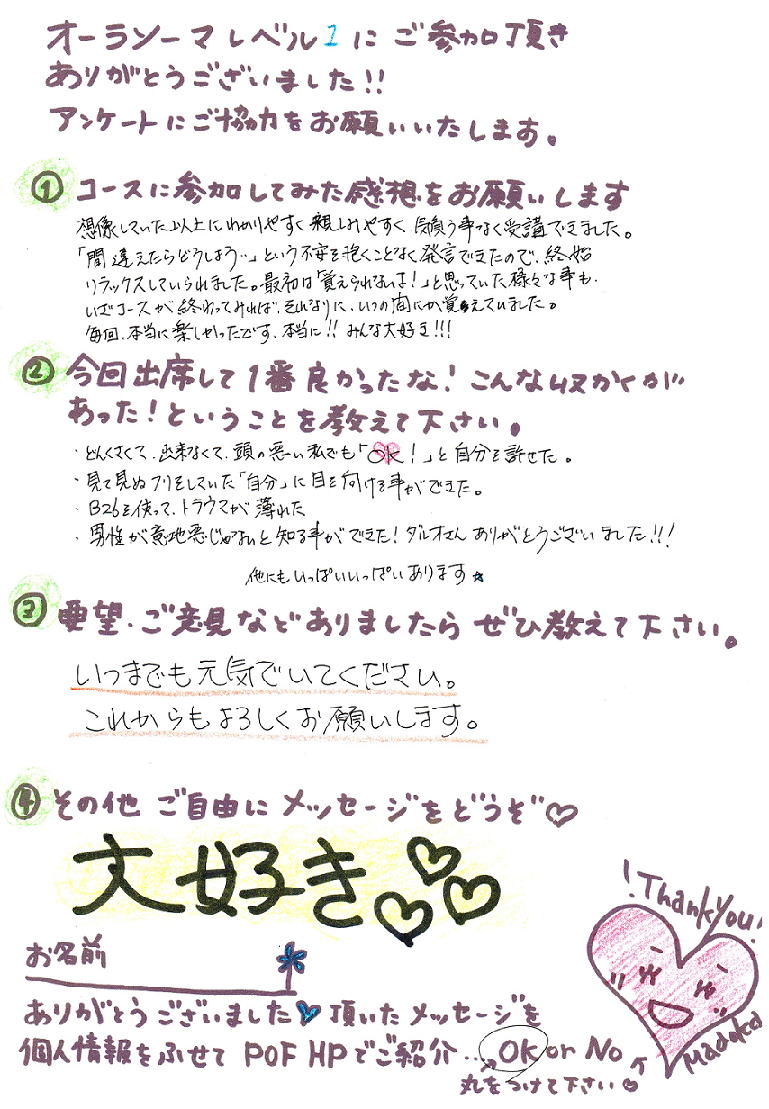 オーラソーマレベル1にご参加頂き
ありがとうございました!!
アンケートにご協力をお願いいたします。
① コースに参加してみた感想をお願いします
想像していた以上にわかりやすく親しみやすく、気負う事なく受講できました。
「間違えたらどうしよう…」という不安を抱くことなく発言できたので、終始
リラックスしていられました。最初は「覚えられないよ!」と思っていた様々な事も、
いざコースが終わってみれば、それなりに、いつの間にか覚えていました。
毎回、本当に楽しかったです、本当に!! みんな大好き!!!
② 今回出席して1番良かったな!こんな収かくが
あった!ということを教えて下さい。
・どんくさくて、出来なくて、頭の悪い私でも「OK!」と自分を許せた。
・見て見ぬフリをしていた「自分」に目を向ける事ができた。
・B26を使って、トラウマが薄れた
・男性が意地悪じゃないと知る事ができた! ダルオさん ありがとうございました!!!
他にもいっぱいいっぱいあります★
③ 要望・ご意見などありましたら ぜひ教えて下さい。
いつまでも元気でいてください。
これからもよろしくお願いします。
④ その他 ご自由に メッセージを どうぞ♡
大好き♡♡♡
!Thank you!
お名前
ありがとうございました♥ 頂いた メッセージを
個人情報をふせて POF HPでご紹介… OK or No
丸をつけて下さい
Madoka